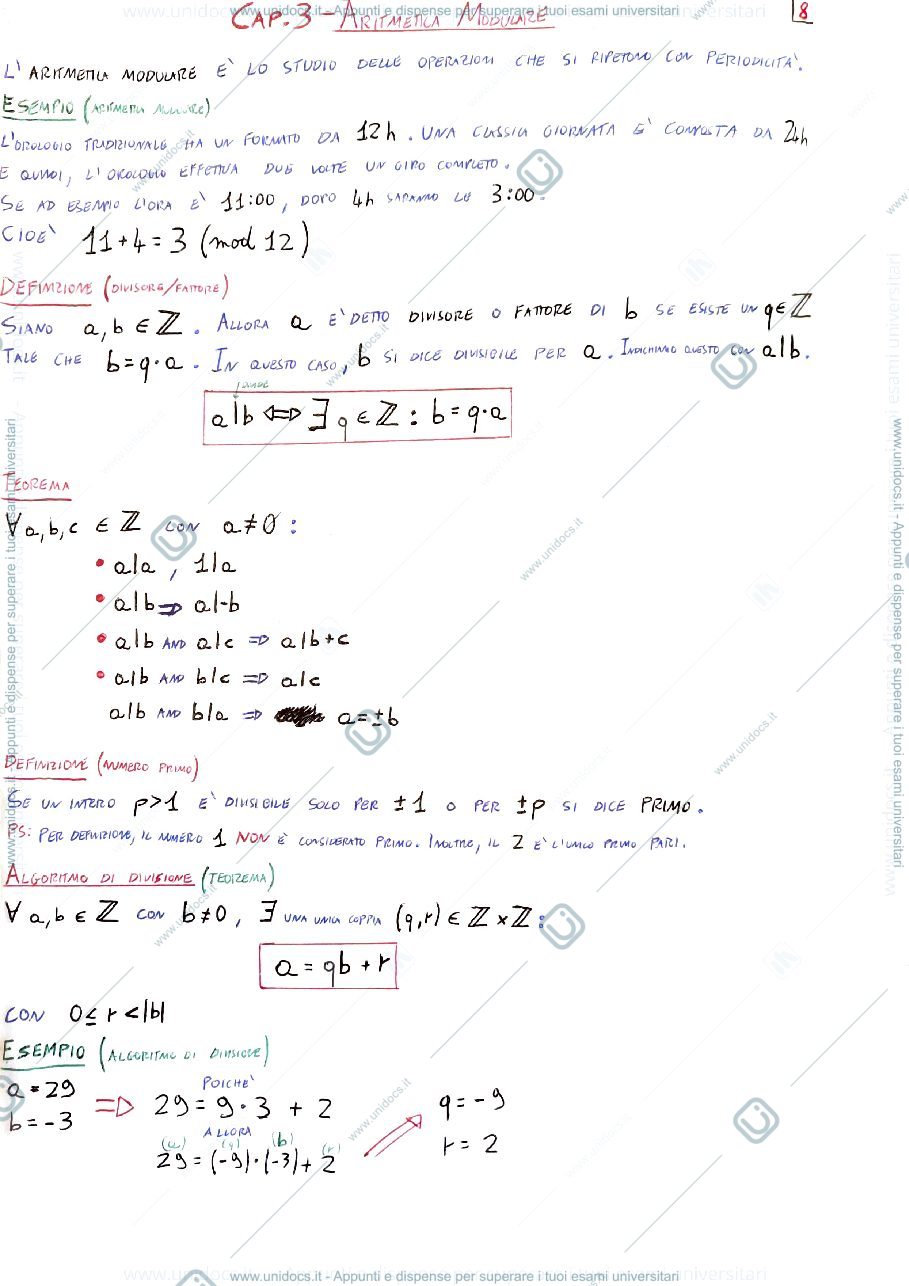 www.unidocs.it - Appunti e dispense per superare i tuoi esami universitari
CAP. 3 - ARITMETICA MODULARE
8
L' ARITMETICA MODULARE E' LO STUDIO DELLE OPERAZIONI CHE SI RIPETONO CON PERIODICITA'.
ESEMPIO (ARITMETICA MODULARE)
L'OROLOGIO TRADIZIONALE HA UN FORMATO DA 12h. UNA CLASSICA GIORNATA E' COMPOSTA DA 24h
E QUINDI, L'OROLOGIO EFFETTUA DUE VOLTE UN GIRO COMPLETO.
SE AD ESEMPIO L'ORA E' 11:00, DOPO 4h SARANNO LE 3:00.
CIOE' 11+4=3 (mod 12)
DEFINIZIONE (DIVISORE/FATTORE)
SIANO a,b ∈ ℤ. ALLORA a E' DETTO DIVISORE O FATTORE DI b SE ESISTE UN q∈ℤ
TALE CHE b=q·a. IN QUESTO CASO, b SI DICE DIVISIBILE PER a. INDICHIAMO QUESTO CON a|b.
DIVIDE
a|b ⟺ ∃ q ∈ ℤ : b = q·a
TEOREMA
∀ a,b,c ∈ ℤ CON a≠0 :
• a|a , 1|a
• a|b ⇒ a|-b
• a|b AND a|c ⇒ a|b+c
• a|b AND b|c ⇒ a|c
a|b AND b|a ⇒ a=±b
DEFINIZIONE (NUMERO PRIMO)
SE UN INTERO p>1 E' DIVISIBILE SOLO PER ±1 O PER ±p SI DICE PRIMO.
PS: PER DEFINIZIONE, IL NUMERO 1 NON E' CONSIDERATO PRIMO. INOLTRE, IL 2 E' L'UNICO PRIMO PARI.
ALGORITMO DI DIVISIONE (TEOREMA)
∀ a,b ∈ ℤ CON b≠0, ∃ UNA UNICA COPPIA (q,r) ∈ ℤ×ℤ:
a = qb + r
CON 0≤ r <|b|
ESEMPIO (ALGORITMO DI DIVISIONE)
a = 29
b = -3
⇒
POICHE'
29 = 9·3 + 2
ALLORA
(a) (q) (b) (r)
29 = (-9)·(-3)+ 2
q = -9
r = 2
www.unidocs.it - Appunti e dispense per superare i tuoi esami universitari
www.unidocs.it - Appunti e dispense per superare i tuoi esami universitari
www.unidocs.it - Appunti e dispense per superare i tuoi esami universitari
www.unidocs.it
www.unidocs.it
www.unidocs.it
www.unidocs.it